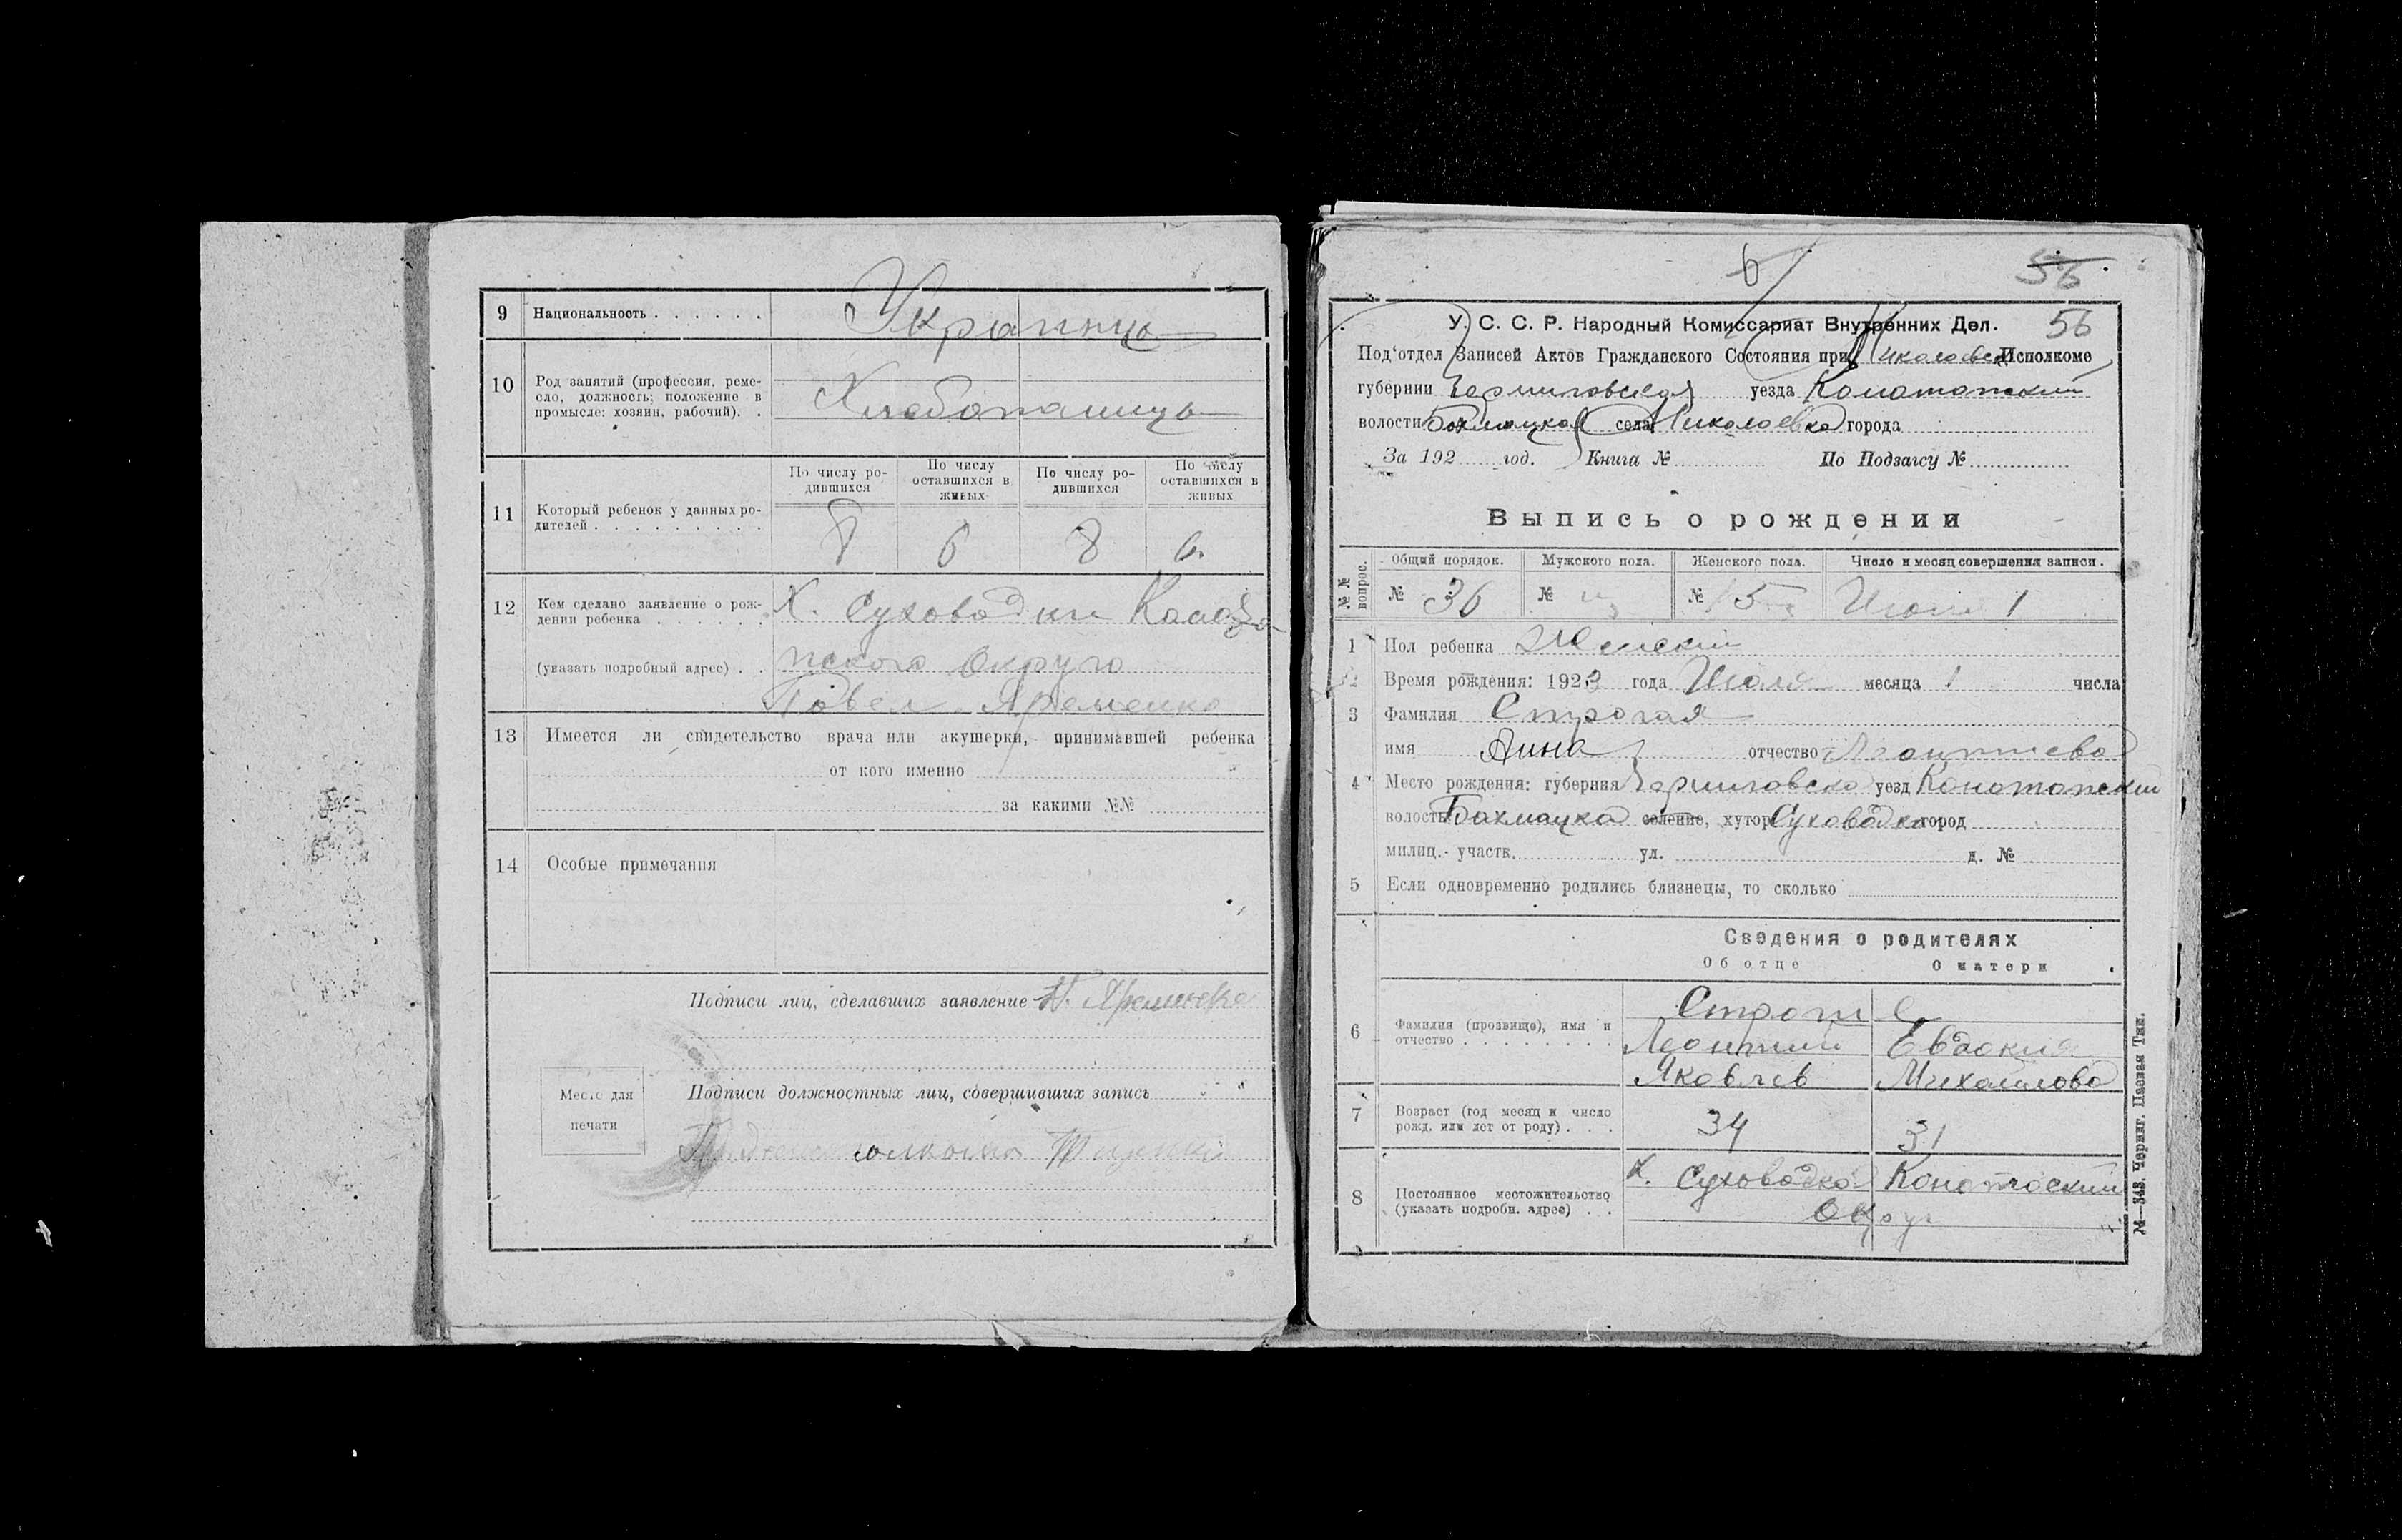 9 Национальность . . . . . . Украинцы
10 Род занятий (профессия, реме-
сло, должность; положение в
промысле: хозяин, рабочий). .
Хлебопашцы
По числу ро-
дившихся
По числу
оставшихся в
живых
По числу ро-
дившихся
По числу
оставшихся в
живых
11 Который ребенок у данных ро-
дителей . . . . . . . . .
8 6 8 6.
12 Кем сделано заявление о рож-
дении ребенка . . . . . .
(указать подробный адрес) . .
Х. Суховодки
пского Округа
Павел Яременко
13 Имеется ли свидетельство врача или акушерки, принимавшей ребенка
от кого именно
за какими №№
14 Особые примечания
Подписи лиц, сделавших заявление П. Яременко
Место для
печати
Подписи должностных лиц, совершивших запись
6
56
56
У. С. С. Р. Народный Комиссариат Внутренних Дел.
Под‘отдел Записей Актов Гражданского Состояния при Исполкоме
губернии Черниговская уезда Конотопский
волости Бахмацкая села Николаевка города
За 192 год. Книга № По Подзагсу №
Выпись о рождении
№№ вопрос.
Общий порядок. Мужского пола. Женского пола. Число и месяц совершения записи.
№ 36 № № 15 1
1 Пол ребенка Женский
2 Время рождения: 1923 года Июля месяца 1 числа
3 Фамилия Строгая
имя Анна отчество Леонтиева
4 Место рождения: губерния Черниговска уезд Конотопский
волость Бахмацка селение, хутор Суховодка город
милиц. участк. ул. д. №
5 Если одновременно родились близнецы, то сколько
Сведения о родителях
Об отце О матери
6 Фамилия (прозвище), имя и
отчество . . . . . . . .
Строги С.
Леонтий Евдокия
Яковлев Михайлова
7 Возраст (год месяц и число
рожд. или лет от роду) . . .
34 31
8 Постоянное местожительство
(указать подробн. адрес) . . .
Х. Суховодка
Округ
М—343. Черниг. Паевая Тип.